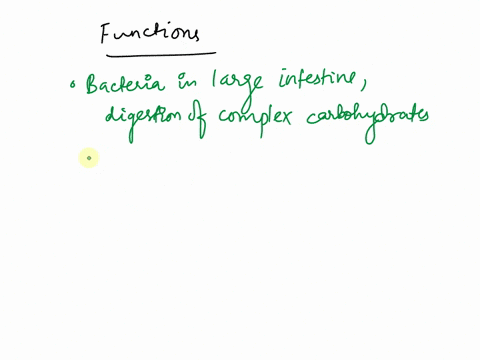 Functions
• Bacteria in large intestine,
digestion of complex carbohydrates
•